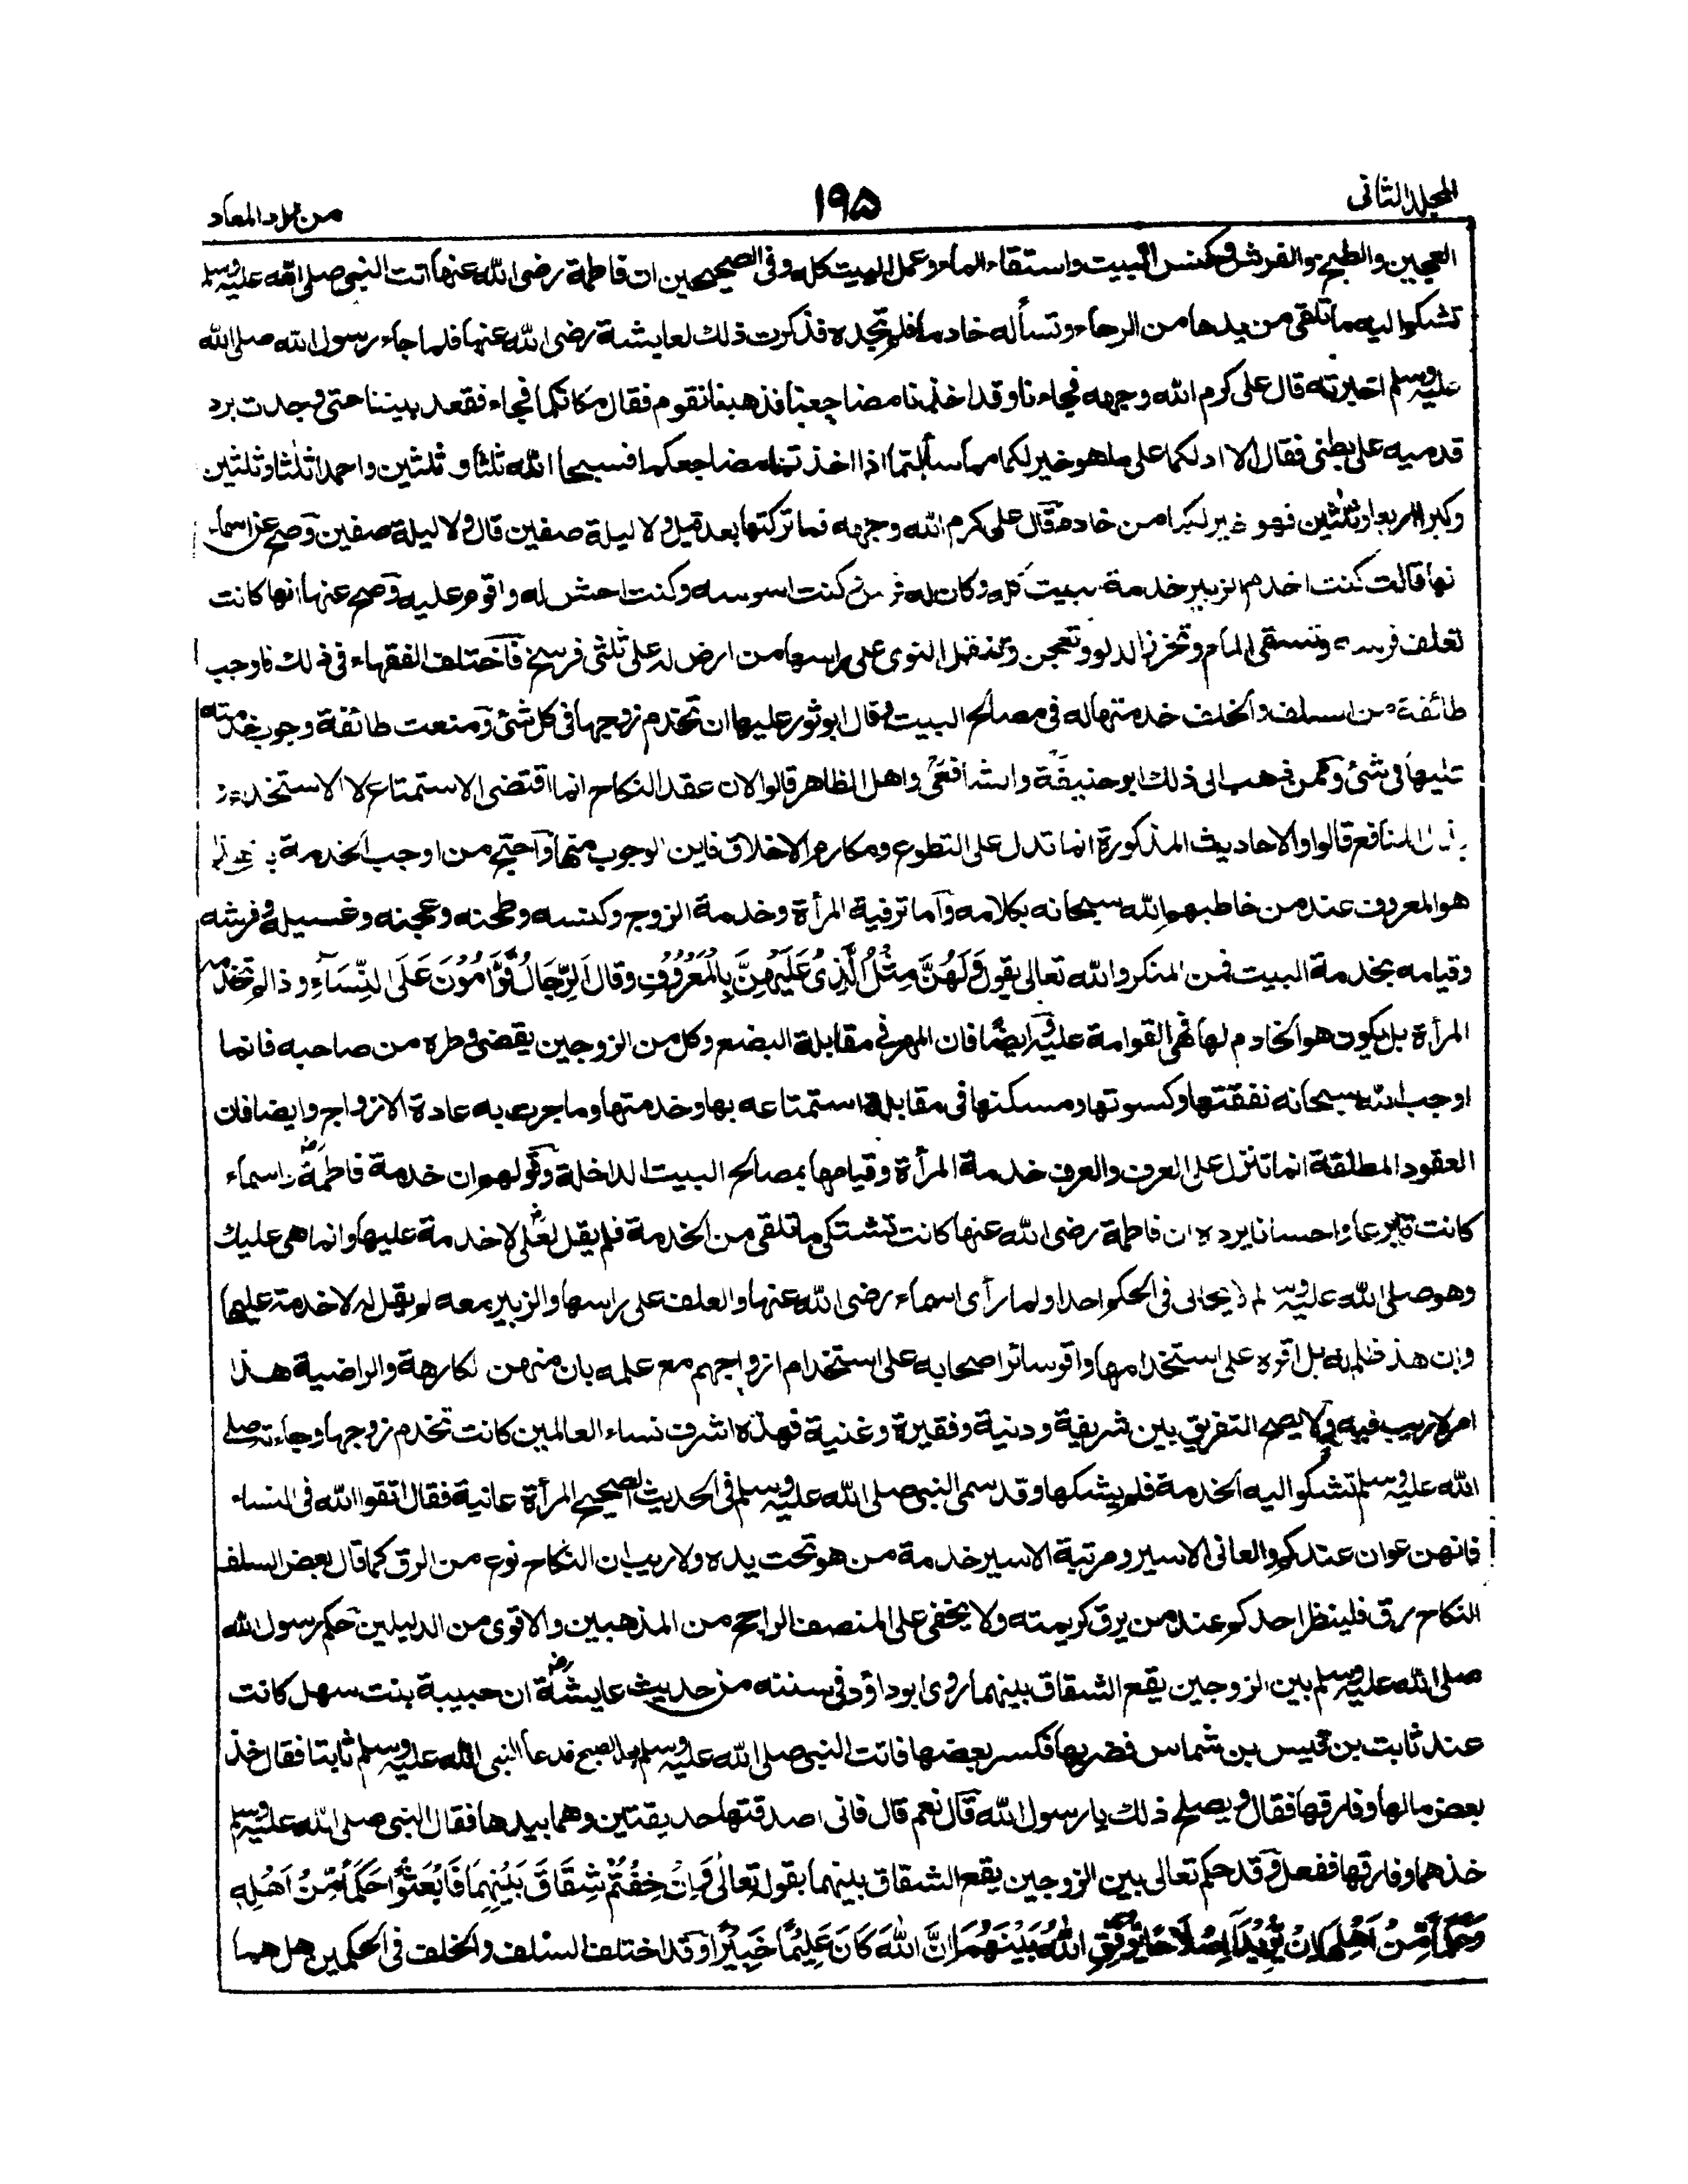 المجلد الثانى
١٩٥
من زاد المعاد
العجين والطبخ والفرش وكنس البيت واستقاء الماء وعمل البيت كله وفى الصحيحين ان فاطمة رضى الله عنها اتت النبى صلى الله عليه وسلم
تشكوا ليه ما تلقى من يدها من الرحاء وتسأله خادما فلم تجده فذكرت ذلك لعايشة رضى الله عنها فلما جاء رسول الله صلى الله
عليه وسلم اخبرته قال على كرم الله وجهه فجاءنا وقد اخذنا مضاجعنا فذهبنا نقوم فقال مكانكما فجاء فقعد بيننا حتى وجدت برد
قدميه على بطنى فقال الا ادلكما على ما هو خير لكما مما سألتما اذا اخذتما مضاجعكما فسبحا الله ثلثا وثلثين واحمدا ثلثا وثلثين
وكبرا اربعا وثلثين فهو خير لكما من خادم قال على كرم الله وجهه فما تركتها بعد قيل ولا ليلة صفين قال ولا ليلة صفين وصح عن اسماء
نها قالت كنت اخدم الزبير خدمة البيت كله وكان له فرس كنت اسوسه وكنت احتش له واقوم عليه وصح عنها انها كانت
تعلف فرسه وتسقى الماء وتخرز الدلو وتعجن وتنقل النوى على راسها من ارض له على ثلثى فرسخ فاختلف الفقهاء فى ذلك فاوجب
طائفة من السلف والخلف خدمتها له فى مصالح البيت وقال ابو ثور عليها ان تخدم زوجها فى كل شئ ومنعت طائفة وجوب خدمته
عليها فى شئ وممن ذهب الى ذلك ابو حنيفة والشافعى واهل الظاهر قالوا لان عقد النكاح انما اقتضى الاستمتاع لا الاستخدام
وبذل المنافع قالوا والاحاديث المذكورة انما تدل على التطوع ومكارم الاخلاق فاين الوجوب منها واحتج من اوجب الخدمة بان هذا
هو المعروف عند من خاطبهم الله سبحانه بكلامه وأما ترفية المرأة وخدمة الزوج وكنسه وطحنه وعجنه وغسيله وفرشه
وقيامه بخدمة البيت فمن المنكر والله تعالى يقول وَلَهُنَّ مِثْلُ الَّذِىْ عَلَيْهِنَّ بِالْمَعْرُوْفِ وقال اَلرِّجَالُ قَوَّامُوْنَ عَلَى النِّسَاءِ واذا لم تخدمه
المرأة بل يكون هو الخادم لها فهى القوامة عليه وايضا فان المهر فى مقابلة البضع وكل من الزوجين يقضى وطره من صاحبه فانما
اوجب الله سبحانه نفقتها وكسوتها ومسكنها فى مقابلة استمتاعه بها وخدمتها وما جرت به عادة الازواج وايضا فان
العقود المطلقة انما تنزل على العرف والعرف خدمة المرأة وقيامها بمصالح البيت الداخلة وقولهم ان خدمة فاطمة واسماء
كانت تبرعا واحسانا يرده ان فاطمة رضى الله عنها كانت تشتكى ما تلقى من الخدمة فلم يقل لعلى لا خدمة عليها وانما هى عليك
وهو صلى الله عليه وسلم لا يحابى فى الحكم احدا ولما رأى اسماء رضى الله عنها والعلف على راسها والزبير معه لم يقل له لا خدمة عليها
وان هذ ظلم له بل اقره على استخدامها واقر سائر اصحابه على استخدام ازواجهم مع علمه بان منهن الكارهة والراضية هذا
امر لا ريب فيه ولا يصح التفريق بين شريفة ودنية وفقيرة وغنية فهذه اشرف نساء العالمين كانت تخدم زوجها وجاءته صلى
الله عليه وسلم تشكوا اليه الخدمة فلم يشكها وقد سمى النبى صلى الله عليه وسلم فى الحديث الصحيح المرأة عانية فقال اتقوا الله فى النساء
فانهن عوان عندكم والعانى الاسير ومرتبة الاسير خدمة من هو تحت يده ولا ريب ان النكاح نوع من الرق كما قال بعض السلف
النكاح رق فلينظر احدكم عند من يرق كريمته ولا يخفى على المنصف الراجح من المذهبين والاقوى من الدليلين حكم رسول الله
صلى الله عليه وسلم بين الزوجين يقع الشقاق بينهما روى ابو داؤد فى سننه من حديث عايشة ان حبيبة بنت سهل كانت
عند ثابت بن قيس بن شماس فضربها فكسر بعضها فاتت النبى صلى الله عليه وسلم بعد الصبح فدعا النبى الله عليه وسلم ثابتا فقال خذ
بعض مالها وفارقها فقال ويصلح ذلك يا رسول الله قال نعم قال فانى اصدقتها حديقتين وهما بيدها فقال النبى صلى الله عليه وسلم
خذهما وفارقها ففعل وقد حكم تعالى بين الزوجين يقع الشقاق بينهما بقوله تعالى وَاِنْ خِفْتُمْ شِقَاقَ بَيْنِهِمَا فَابْعَثُوْا حَكَمًا مِّنْ اَهْلِهٖ
وَحَكَمًا مِّنْ اَهْلِهَا اِنْ يُّرِيْدَا اِصْلَاحًا يُّوَفِّقِ اللهُ بَيْنَهُمَا اِنَّ اللهَ كَانَ عَلِيْمًا خَبِيْرًا وقد اختلف السلف والخلف فى الحكمين هل هما